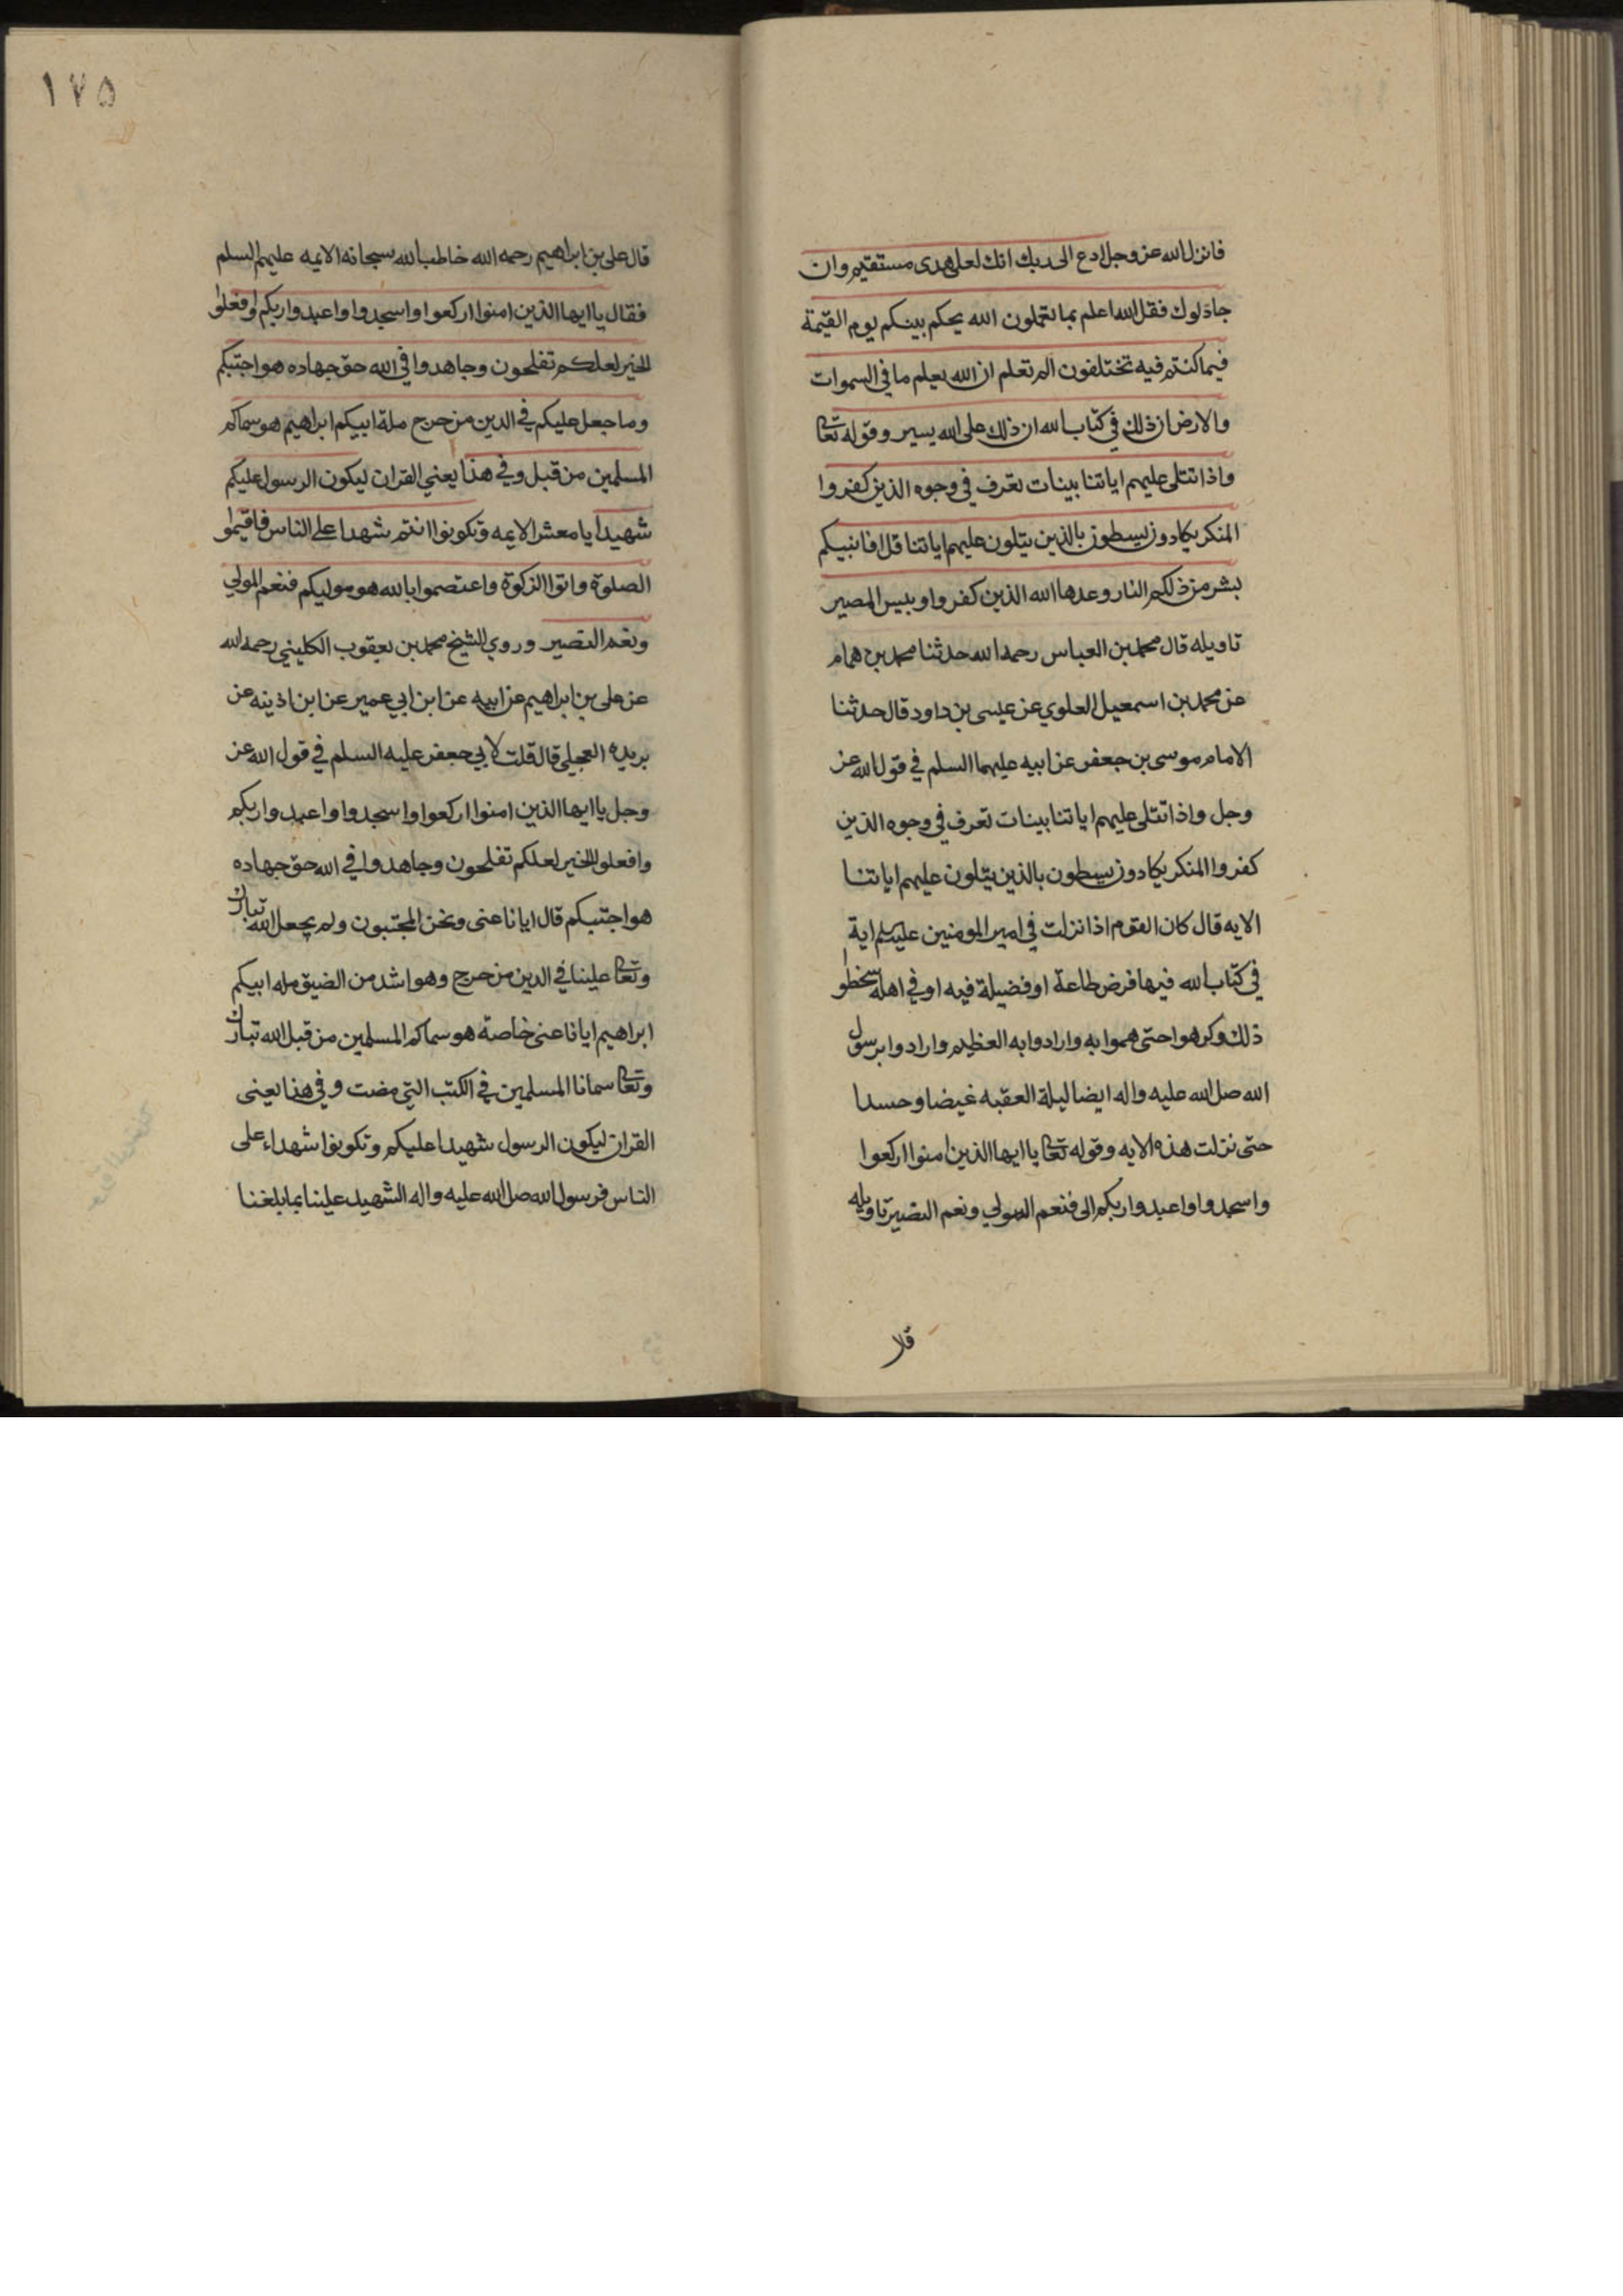 فانزل الله عز وجل ادع الى ربك انك لعلى هدى مستقيم وان
جادلوك فقل الله اعلم بما تعملون الله يحكم بينكم يوم القيمة
فيما كنتم فيه تختلفون الم تعلم ان الله يعلم ما في السموات
والارض ان ذلك في كتاب الله ان ذلك على الله يسير وقوله تعا
واذا تتلى عليهم اياتنا بينات تعرف في وجوه الذين كفروا
المنكر يكادون يسطون بالذين يتلون عليهم اياتنا قل افانبيكم
بشر من ذلكم النار وعدها الله الذين كفروا وبيس المصير
تاويله قال محمد بن العباس رحمه الله حدثنا محمد بن همام
عن محمد بن اسمعيل العلوي عن عيسى بن داود قال حدثنا
الامام موسى بن جعفر عن ابيه عليهما السلم في قول الله عز
وجل واذا تتلى عليهم اياتنا بينات تعرف في وجوه الذين
كفروا المنكر يكادون يسطون بالذين يتلون عليهم اياتنا
الايه قال كان القوم اذا نزلت في امير المومنين عليه السلم اية
في كتاب الله فيها فرض طاعة او فضيلة فيه او في اهله سخطوا
ذلك وكرهوا حتى هموا به وارادوا به العظيم وارادوا برسول
الله صلى الله عليه واله ايضا ليلة العقبه غيضا وحسدا
حتى نزلت هذه الايه وقوله تعا يا ايها الذين امنوا اركعوا
واسجدوا واعبدوا ربكم الى فنعم المولي ونعم النصير تاويله
قال
١٧٥
قال علي بن ابراهيم رحمه الله خاطب الله سبحانه الايمه عليهم السلم
فقال يا ايها الذين امنوا اركعوا واسجدوا واعبدوا ربكم وافعلوا
الخير لعلكم تفلحون وجاهدوا في الله حق جهاده هو اجتبكم
وما جعل عليكم في الدين من حرج ملة ابيكم ابراهيم هو سماكم
المسلمين من قبل وفي هذا يعني القران ليكون الرسول عليكم
شهيدا يا معشر الايمه وتكونوا انتم شهدا على الناس فاقيموا
الصلوة واتوا الزكوة واعتصموا بالله هو موليكم فنعم المولي
ونعم النصير وروي الشيخ محمد بن يعقوب الكليني رحمه الله
عن على بن ابراهيم عن ابيه عن ابن ابي عمير عن ابن اذينه عن
بريده العجلي قال قلت لابي جعفر عليه السلم في قول الله عز
وجل يا ايها الذين امنوا اركعوا واسجدوا واعبدوا ربكم
وافعلوا الخير لعلكم تفلحون وجاهدوا في الله حق جهاده
هو اجتبيكم قال ايانا عنى ونحن المجتبون ولم يجعل الله تبارك
وتعا علينا في الدين من حرج وهو اشد من الضيق مله ابيكم
ابراهيم ايانا عنى خاصة هو سماكم المسلمين من قبل الله تبارك
وتعا سمانا المسلمين في الكتب التي مضت وفي هذا يعنى
القران ليكون الرسول شهيدا عليكم وتكونوا شهداء على
الناس فرسول الله صلى الله عليه واله الشهيد علينا بما بلغنا